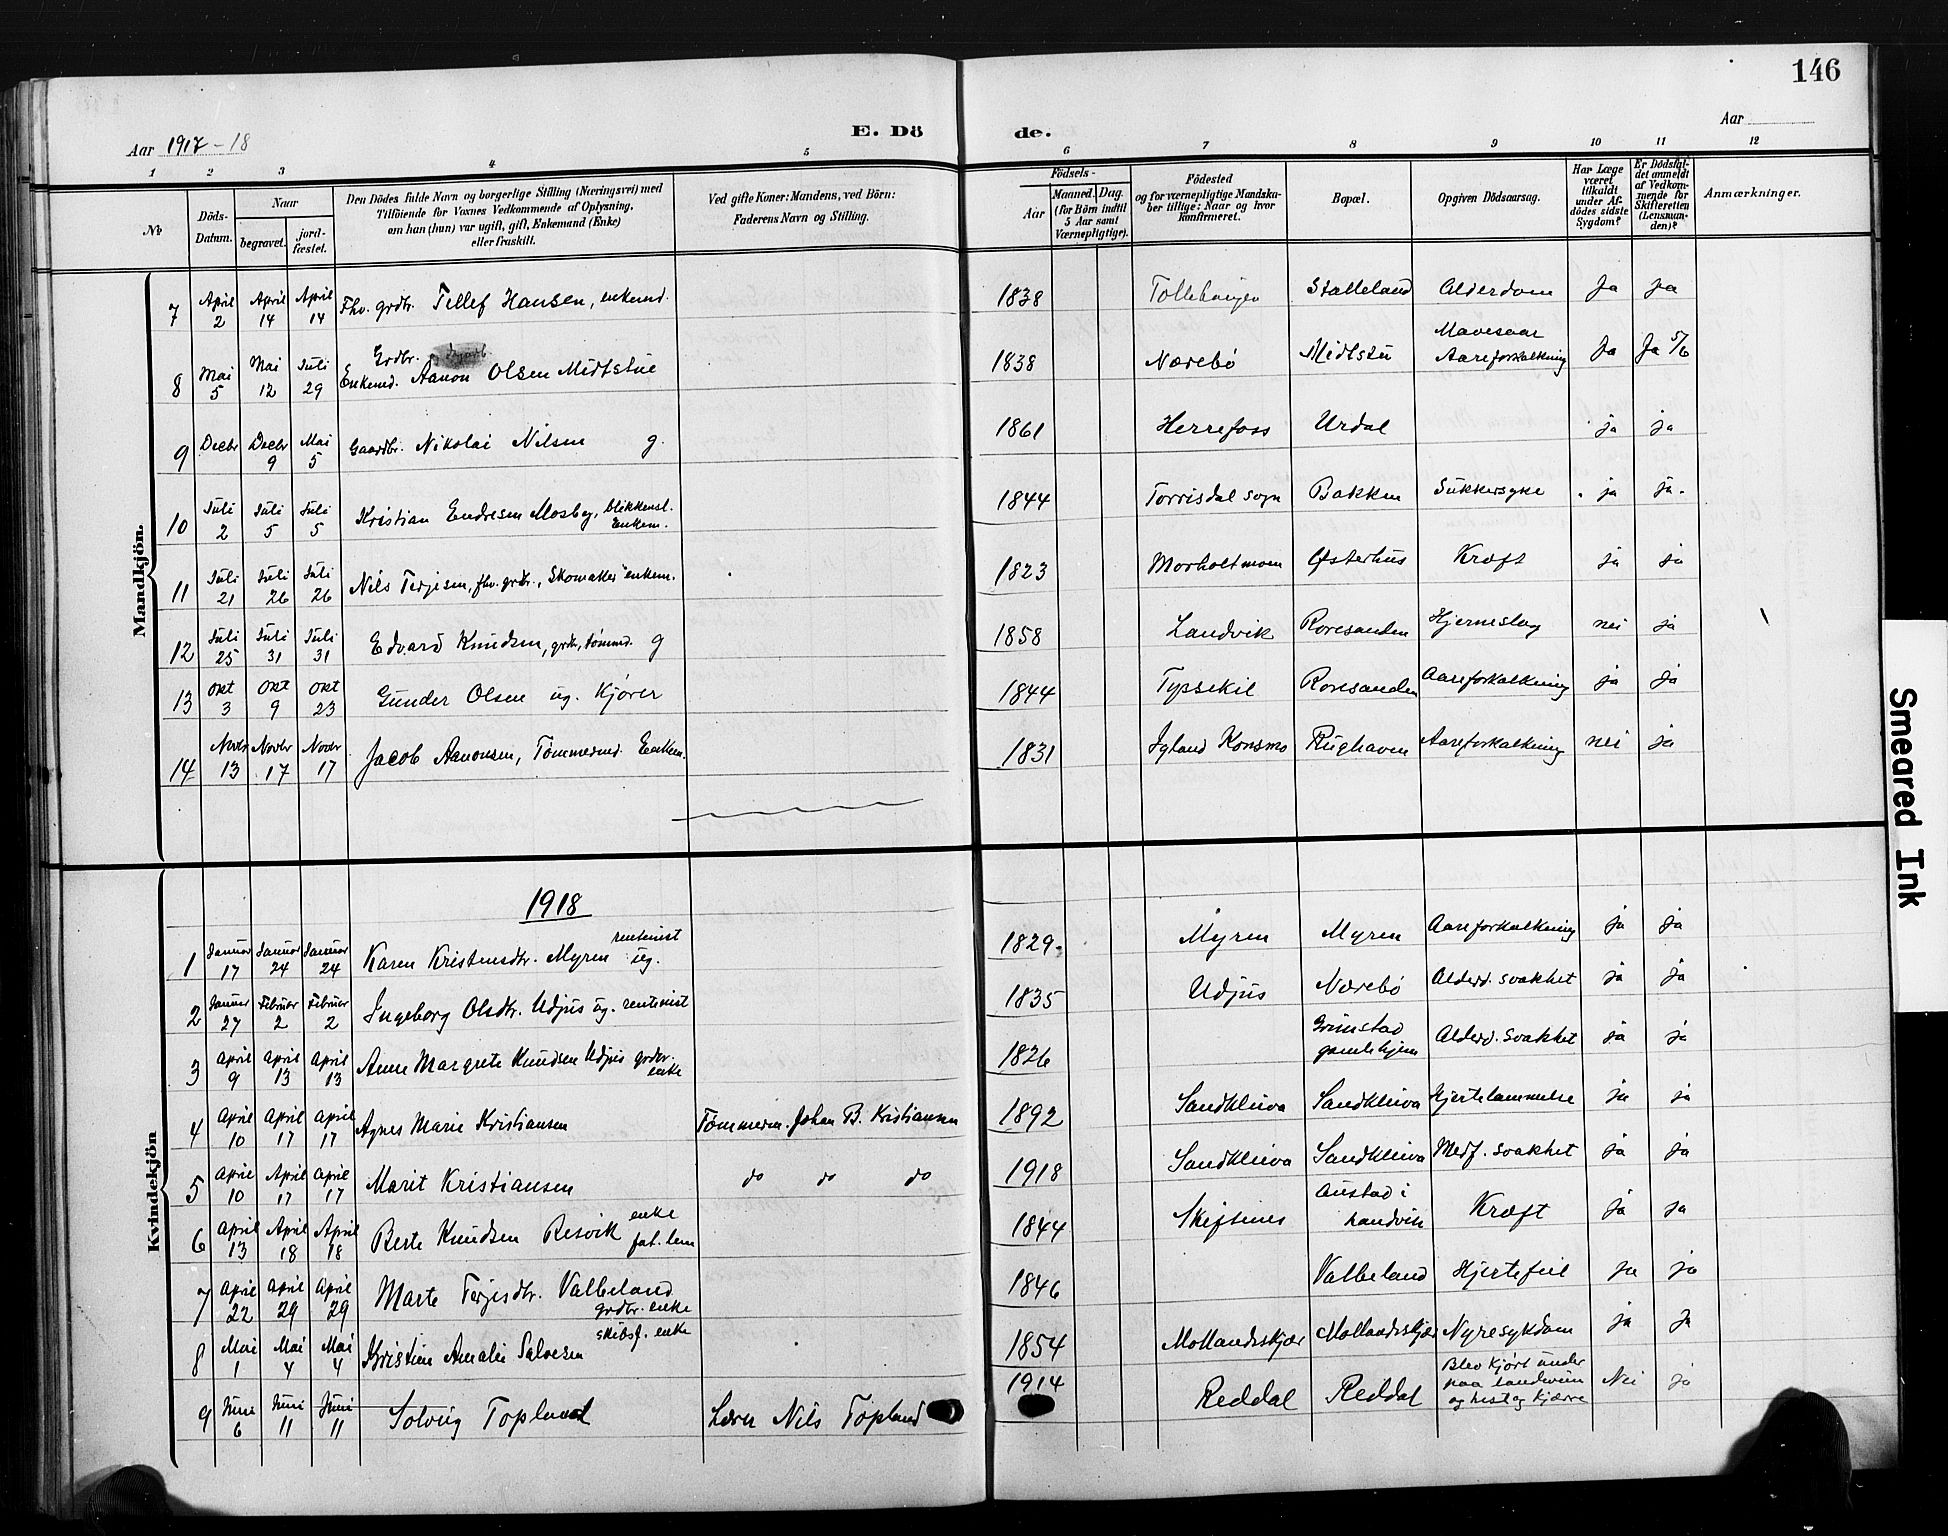 146
Aar 1917-18
E. Dö de.
Aar
1 2 3 4 5 6 7 8 9 10 11 12
№
Döds-Datum.
Naar
begravet.
jord-fæstet.
Den Dödes fulde Navn og borgerlige Stilling (Næringsvei) med
Tilföiende for Voxnes Vedkommende af Oplysning,
om han (hun) var ugift, gift, Enkemand (Enke)
eller fraskilt.
Ved gifte Koner: Mandens, ved Börn:
Faderens Navn og Stilling.
Födsels-
Aar
Maaned. Dag.
(for Börn indtil
5 Aar samt
Værnepligtige).
Födested
og for værnepligtige Mandska-
ber tillige: Naar og hvor
konfirmeret.
Bopæl.
Opgiven Dödsaarsag.
Har Læge
været
tilkaldt
under Af-
dödes sidste
Sygdom?
Er Dödsfal-
det anmeldt
af Vedkom-
mende for
Skifteretten
(Lensman-
den)?
Anmærkninger.
Mandkjön.
7 April 2 April 14 April 14 Fhv. grdbr. Tellef Hansen, enkemd. 1838 Stalleland Alderdom Ja ja
8 Mai 5 Mai 12 Juli 29 Grdbr. Enkemd. Aanon Olsen Midtstue 1838 Nærebö Midtstu Mavesaar Aareforkalkning Ja Ja 5/6
9 Decbr Decbr 9 Mai 5 Gaardbr. Nikolai Nilsen g. 1861 Herrefoss Urdal ja ja
10 Juli 2 Juli 5 Juli 5 Kristian Endresen Mosby, blikkensl. Enkem. 1844 Torrisdal sogn Bakken Sukkersyke ja ja.
11 Juli 21 Juli 26 Juli 26 Nils Terjesen, fhv. grdbr., Skomaker enkem. 1823 Morholtmoen Østerhus Kræft ja ja
12 Juli 25 Juli 31 Juli 31 Edvard Knudsen, grdb, tømmd. g 1858 Landvik Roresanden Hjerneslag nei ja
13 Okt 3 Okt 9 Okt 23 Gunder Olsen ug. Kjører 1844 Typsekil Roresanden Aareforkalkning ja ja
14 Novbr 13 Novbr 17 Novbr 17 Jacob Aanonsen, Tømmermd. Enkem. 1831 Igland Konsmo Rughaven Aareforkalkning nei ja
Kvindekjön
1918
1 Januar 17 Januar 24 Januar 24 Karen Kristensdtr. Myren rentenist ug. 1829 Myren Myren Aareforkalkning ja ja
2 Januar 27 Februar 2 Februar 2 Ingeborg Olsdtr. Udjus ug. rentenist 1835 Udjus Nærebö Alderd. svakhet ja ja
3 April 9 April 13 April 13 Anne Margrete Knudsen Udjus grdbr. enke 1826 Grimstad gamlehjem Alderd. svakhet ja ja
4 April 10 April 17 April 17 Agnes Marie Kristiansen Tømmerm. Johan B. Kristiansen 1892 Sandkleiva Sandkleiva Hjertelammelse ja ja
5 April 10 April 17 April 17 Marit Kristiansen do do do 1918 Sandkleiva Sandkleiva Medf. svakhet ja ja
6 April 13 April 18 April 18 Berte Knudsen Resvik enke fat. lem 1844 Skifsnes Austad i Landvik Kræft ja ja
7 April 22 April 29 April 29 Marte Terjesdtr. Valbeland grdbr. enke 1846 Valbeland Hjertefeil ja ja
8 Mai 1 Mai 4 Mai 4 Kristine Amalie Salvesen skibsf. enke 1854 Mollandsskjær Mollandsskjær Nyresykdom ja ja
9 Juni 6 Juni 11 Juni 11 Solveig Topland Lærer Nils Topland 1914 Reddal Reddal Blev kjørt under paa landeveien og hest og kjærre Nei ja
Smeared Ink